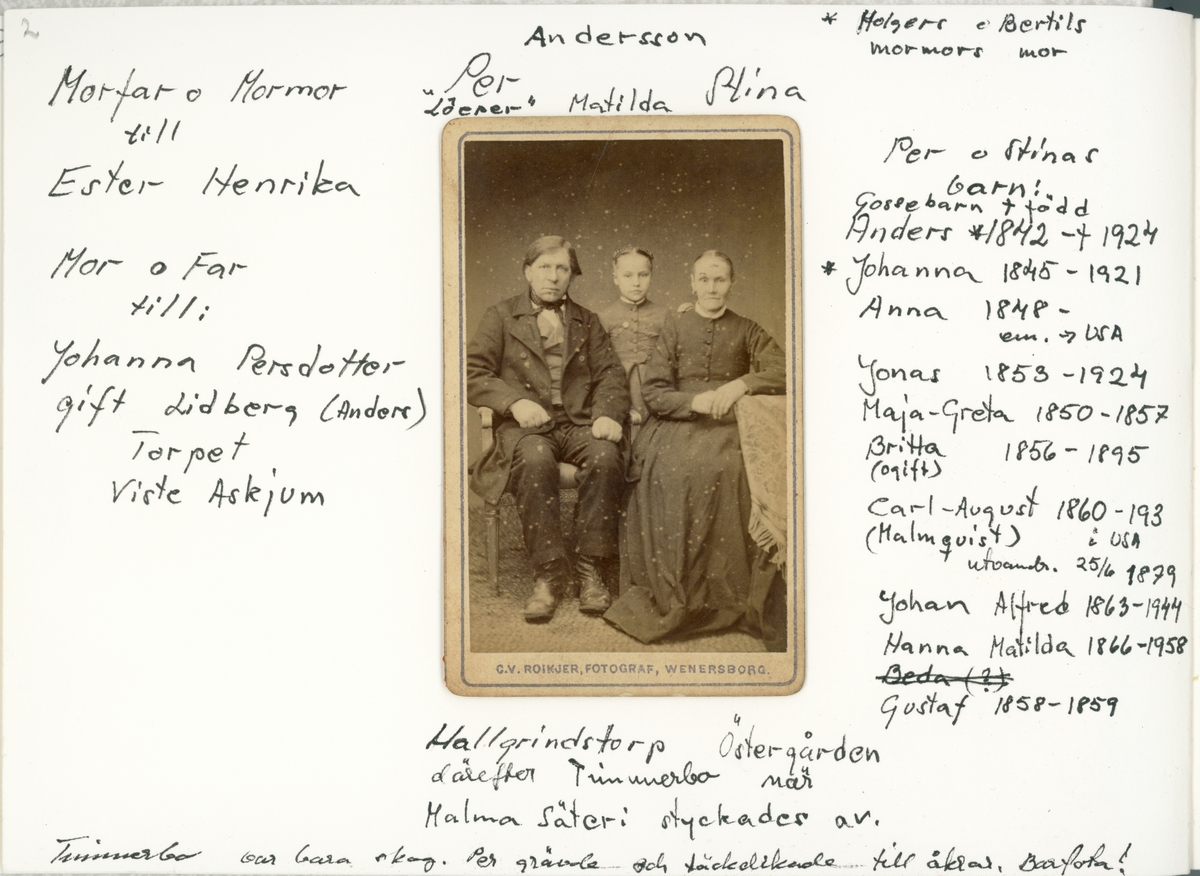 2
Andersson
* Holgers o Bertils
mormors mor
Morfar o Mormor
till
Ester Henrika
Mor o Far
till:
Johanna Persdotter
gift Lidberg (Anders)
Torpet
Viste Askjum
Per
Matilda Stina
C.V. ROIKJER, FOTOGRAF, WENERSBORG.
Per o Stinas
barn!
Gossebarn † född
Anders *1842 - † 1924
* Johanna 1845 - 1921
Anna 1848 -
em. → USA
Jonas 1853 - 1924
Maja-Greta 1850 - 1857
Britta 1856 - 1895
(ogift)
Carl-August 1860 - 193
(Malmqvist) i USA
utvandr. 25/6 1879
Johan Alfred 1863 - 1944
Hanna Matilda 1866 - 1958
Beda (?)
Gustaf 1858 - 1859
Hallgrindstorp Östergården
därefter Timmerbo när
Malma Säteri styckades av.
Timmerbo var bara skog. Per grävde och täckdikade till åkrar. Barfota!